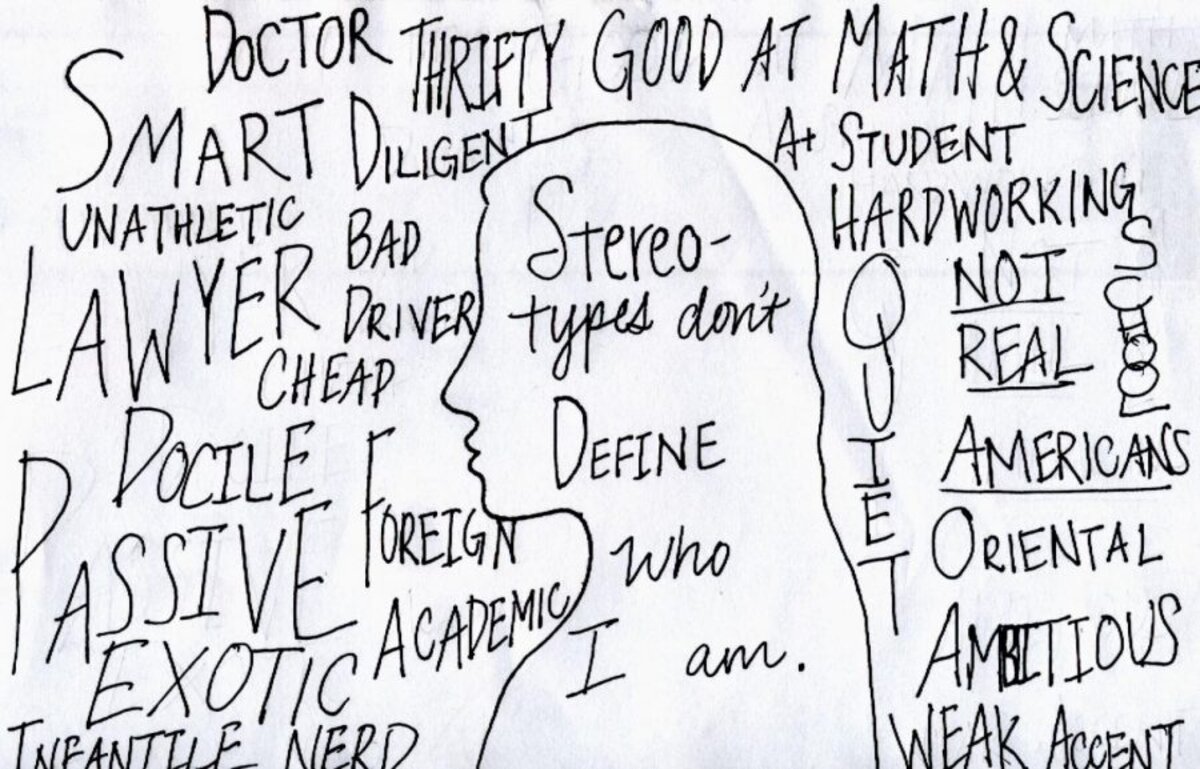 DOCTOR
THRIFTY
GOOD AT MATH & SCIENCE
SMART
DILIGENT
A+ STUDENT
UNATHLETIC
BAD
DRIVER
HARDWORKING
LAWYER
CHEAP
Stereo-
types don't
DEFINE
who
I am.
QUIET
NOT
REAL
AMERICANS
DOCILE
FOREIGN
PASSIVE
ACADEMIC
EXOTIC
ORIENTAL
AMBITIOUS
INFANTILE
NERD
WEAK
ACCENT